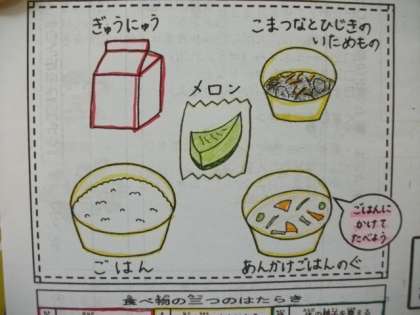 ぎゅうにゅう
こまつなとひじきの
いためもの
メロン
ごはんに
かけて
たべよう
ごはん
あんかけごはんのぐ
食べ物の三つのはたらき